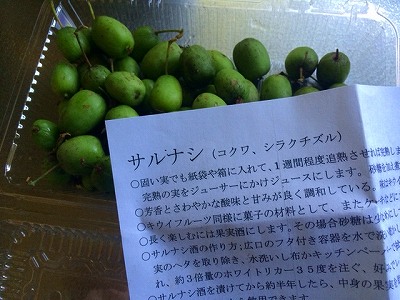 サルナシ（コクワ、シラクチズル）
○固い実でも紙袋や箱に入れて、１週間程度追熟させれば完熟しま
完熟の実をジューサーにかけジュースにします。
○芳香とさわやかな酸味と甘みが良く調和している。
○キウイフルーツ同様に菓子の材料として、また
○長く楽しむには果実酒にします。その場合砂糖は
○サルナシ酒の作り方；広口のフタ付き容器を水で
実のヘタを取り除き、水洗いし布かキッチンペーパー
れ、約３倍量のホワイトリカー３５度を注ぐ、好み
○サルナシ酒を漬けてから約半年したら、中身の果実